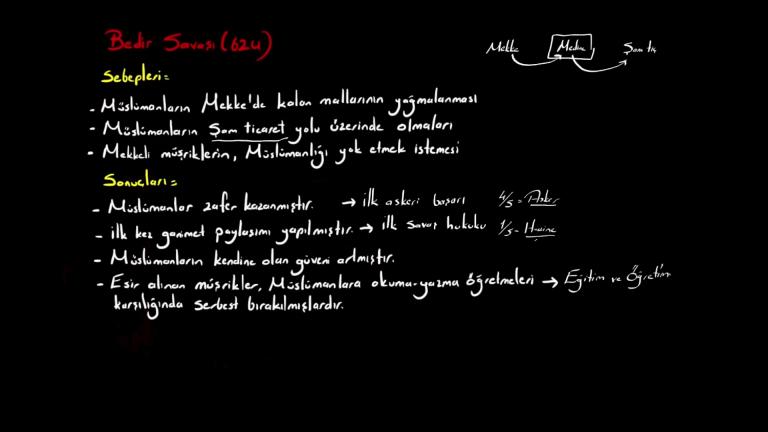 Bedir Savaşı (624)
Mekke Medine Şam tic
Sebepleri =
- Müslümanların Mekke'de kalan mallarının yağmalanması
- Müslümanların Şam ticaret yolu üzerinde olmaları
- Mekkeli müşriklerin, Müslümanlığı yok etmek istemesi
Sonuçları =
- Müslümanlar zafer kazanmıştır. → ilk askeri başarı 4/5 = Asker
- ilk kez ganimet paylaşımı yapılmıştır. → ilk savaş hukuku 1/5 = Hazine
- Müslümanların kendine olan güveni artmıştır.
- Esir alınan müşrikler, Müslümanlara okuma-yazma öğretmeleri → Eğitim ve Öğretim
karşılığında serbest bırakılmışlardır.